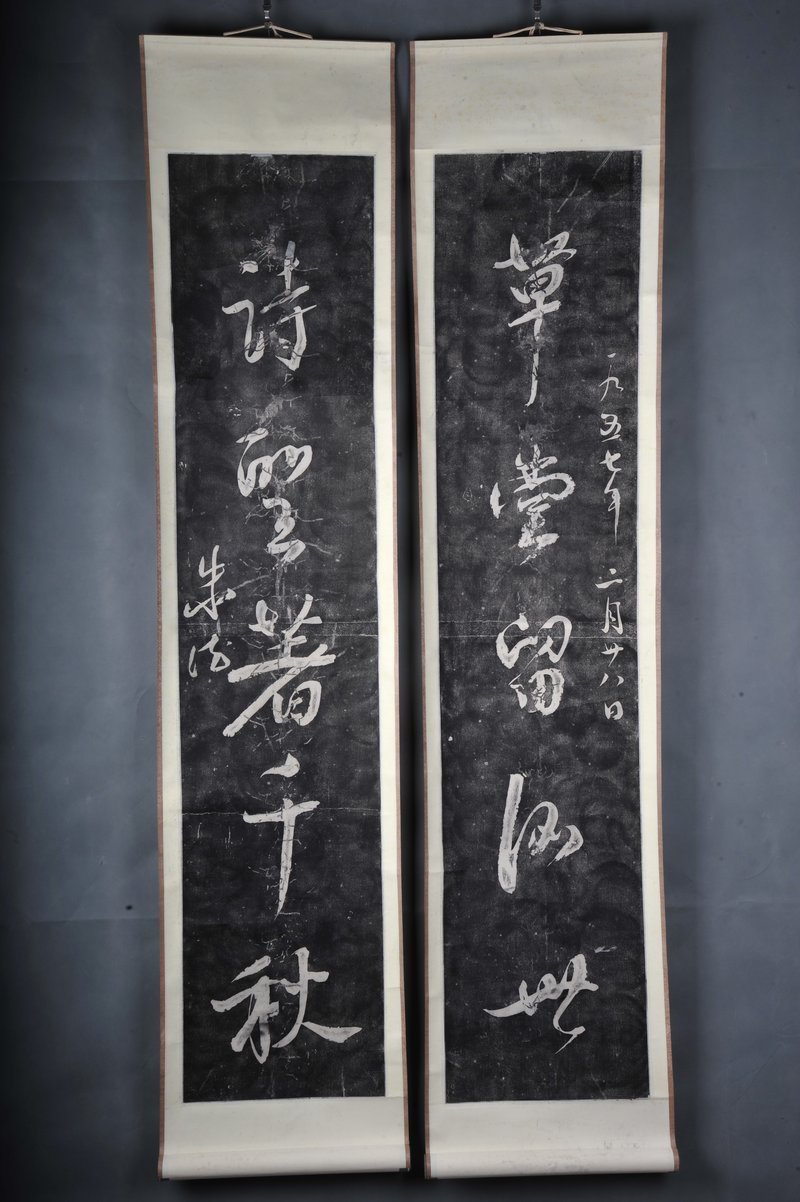 一九五七年 二月廿八日
草堂留後世
詩聖著千秋
朱德